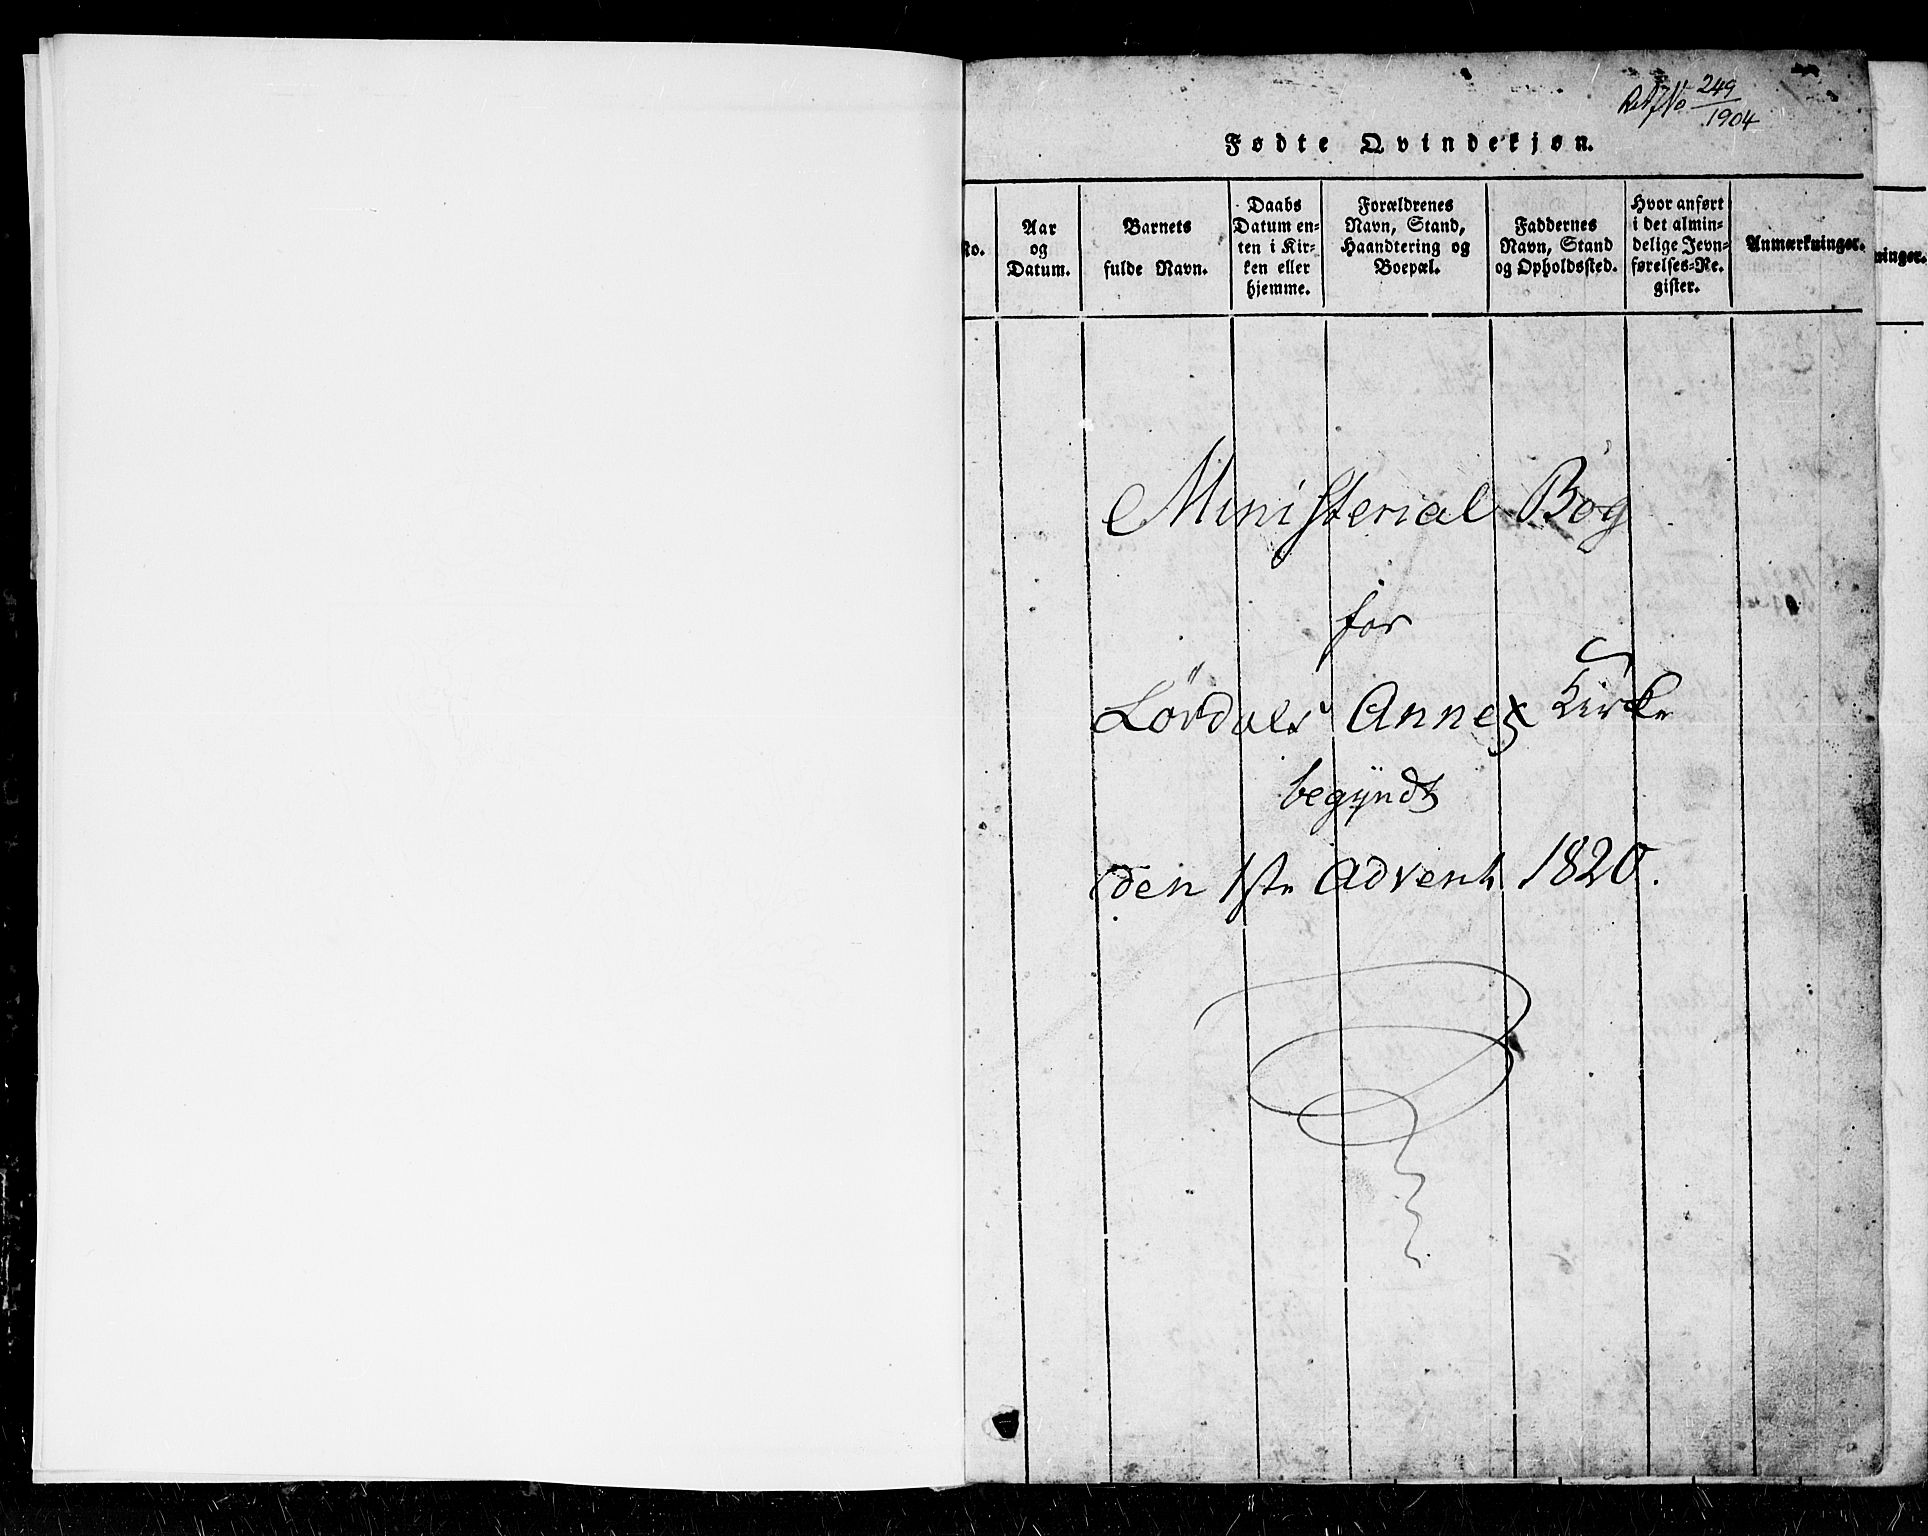 249
1904
Fødte Qvindekjøn.
No.
Aar
og
Datum.
Barnets
fulde Navn.
Daabs
Datum en-
ten i Kir-
ken eller
hjemme.
Forældrenes
Navn, Stand,
Haandtering og
Boepæl.
Faddernes
Navn, Stand
og Opholdssted.
Hvor anført
i det almin-
delige Jevn-
førelses-Re-
gister.
Anmærkninger.
ninger.
Ministerial Bog
for
Lördals Annex Kirke
begÿndt
den 1ste Advent 1820.